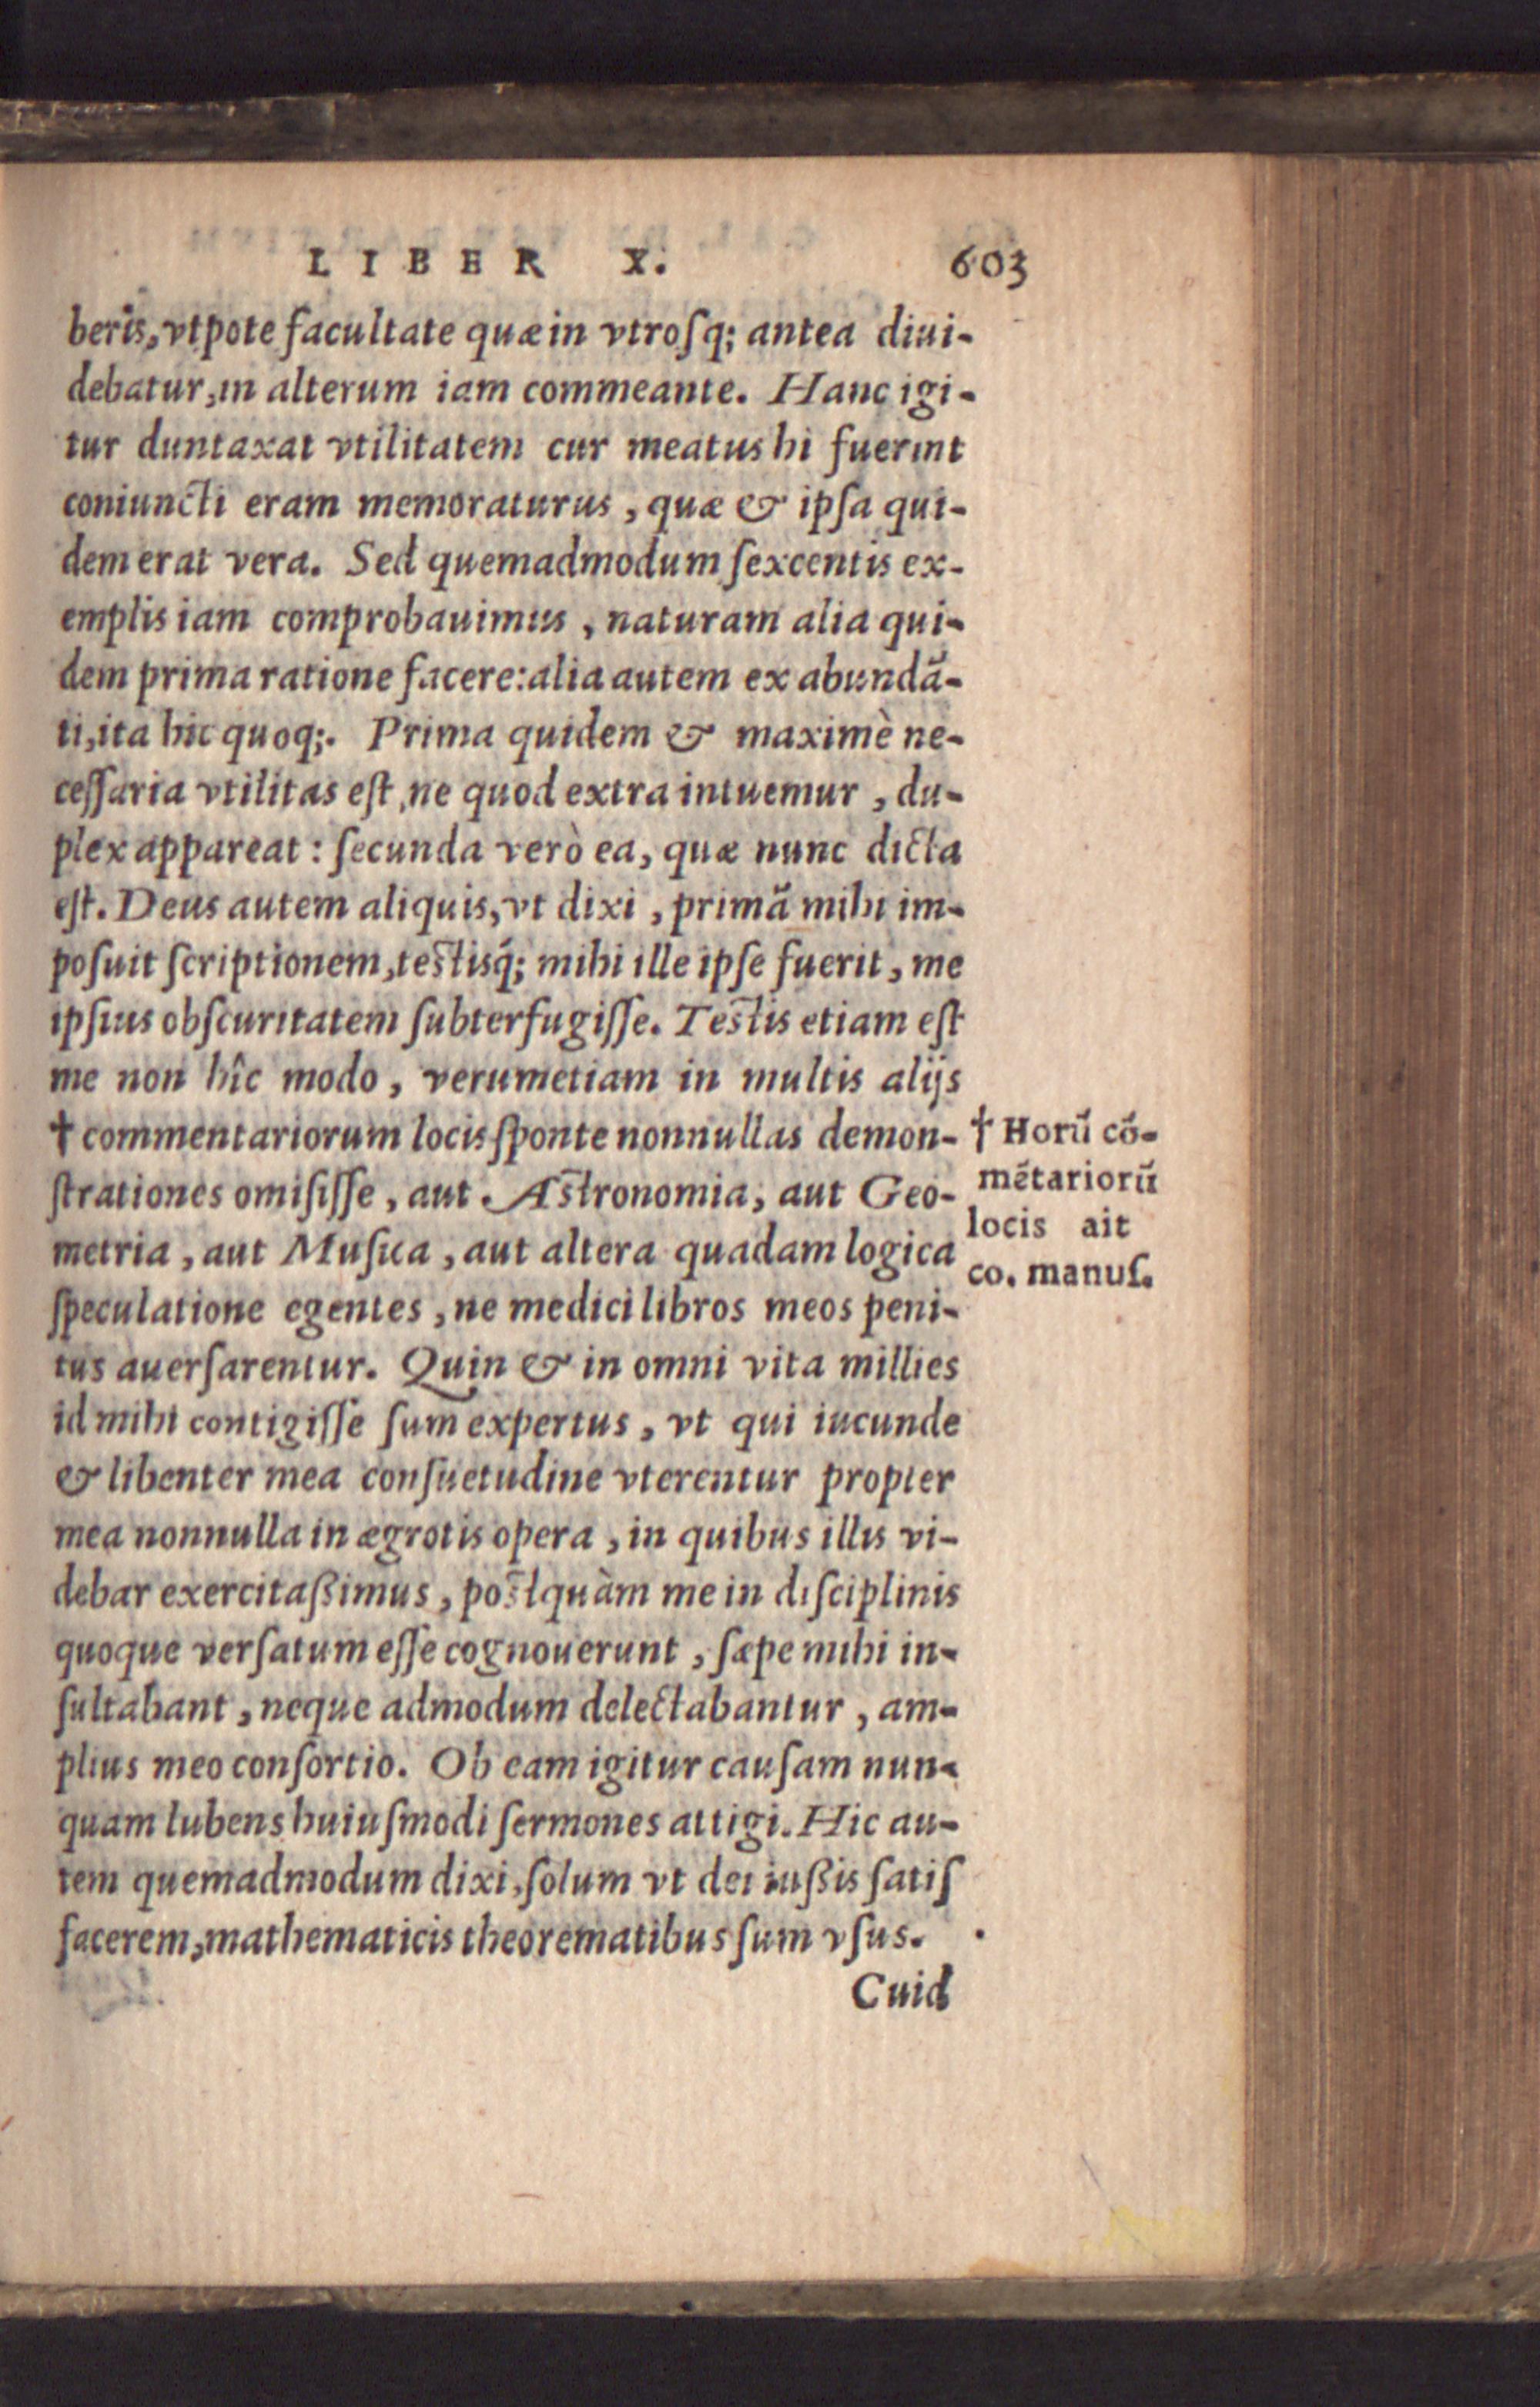 LIBER X. 603
beris, vtpote facultate quæ in vtroſq; antea diui-
debatur, in alterum iam commeante. Hanc igi-
tur duntaxat vtilitatem cur meatus hi fuerint
coniuncti eram memoraturus, quæ & ipſa qui-
dem erat vera. Sed quemadmodum ſexcentis ex-
emplis iam comprobauimus, naturam alia qui-
dem prima ratione facere: alia autem ex abundā-
ti, ita hic quoq;. Prima quidem & maximè ne-
ceſſaria vtilitas eſt, ne quod extra intuemur, du-
plex appareat: ſecunda verò ea, quæ nunc dicta
eſt. Deus autem aliquis, vt dixi, primā mihi im-
poſuit ſcriptionem, teſtisq́; mihi ille ipſe fuerit, me
ipſius obſcuritatem ſubterfugiſſe. Teſtis etiam eſt
me non hîc modo, verumetiam in multis alijs
† commentariorum locis ſponte nonnullas demon-
ſtrationes omiſiſſe, aut Aſtronomia, aut Geo-
metria, aut Muſica, aut altera quadam logica
ſpeculatione egentes, ne medici libros meos peni-
tus auerſarentur. Quin & in omni vita millies
id mihi contigiſſe ſum expertus, vt qui iucunde
& libenter mea conſuetudine vterentur propter
mea nonnulla in ægrotis opera, in quibus illis vi-
debar exercitaßimus, poſtquàm me in diſciplinis
quoque verſatum eſſe cognouerunt, ſæpe mihi in-
ſultabant, neque admodum delectabantur, am-
plius meo conſortio. Ob eam igitur cauſam nun-
quam lubens huiuſmodi ſermones attigi. Hic au-
tem quemadmodum dixi, ſolum vt dei iußis ſatiſ
facerem, mathematicis theorematibus ſum vſus.
Cuid
† Horū cō-
mētariorū
locis ait
co. manuſ.